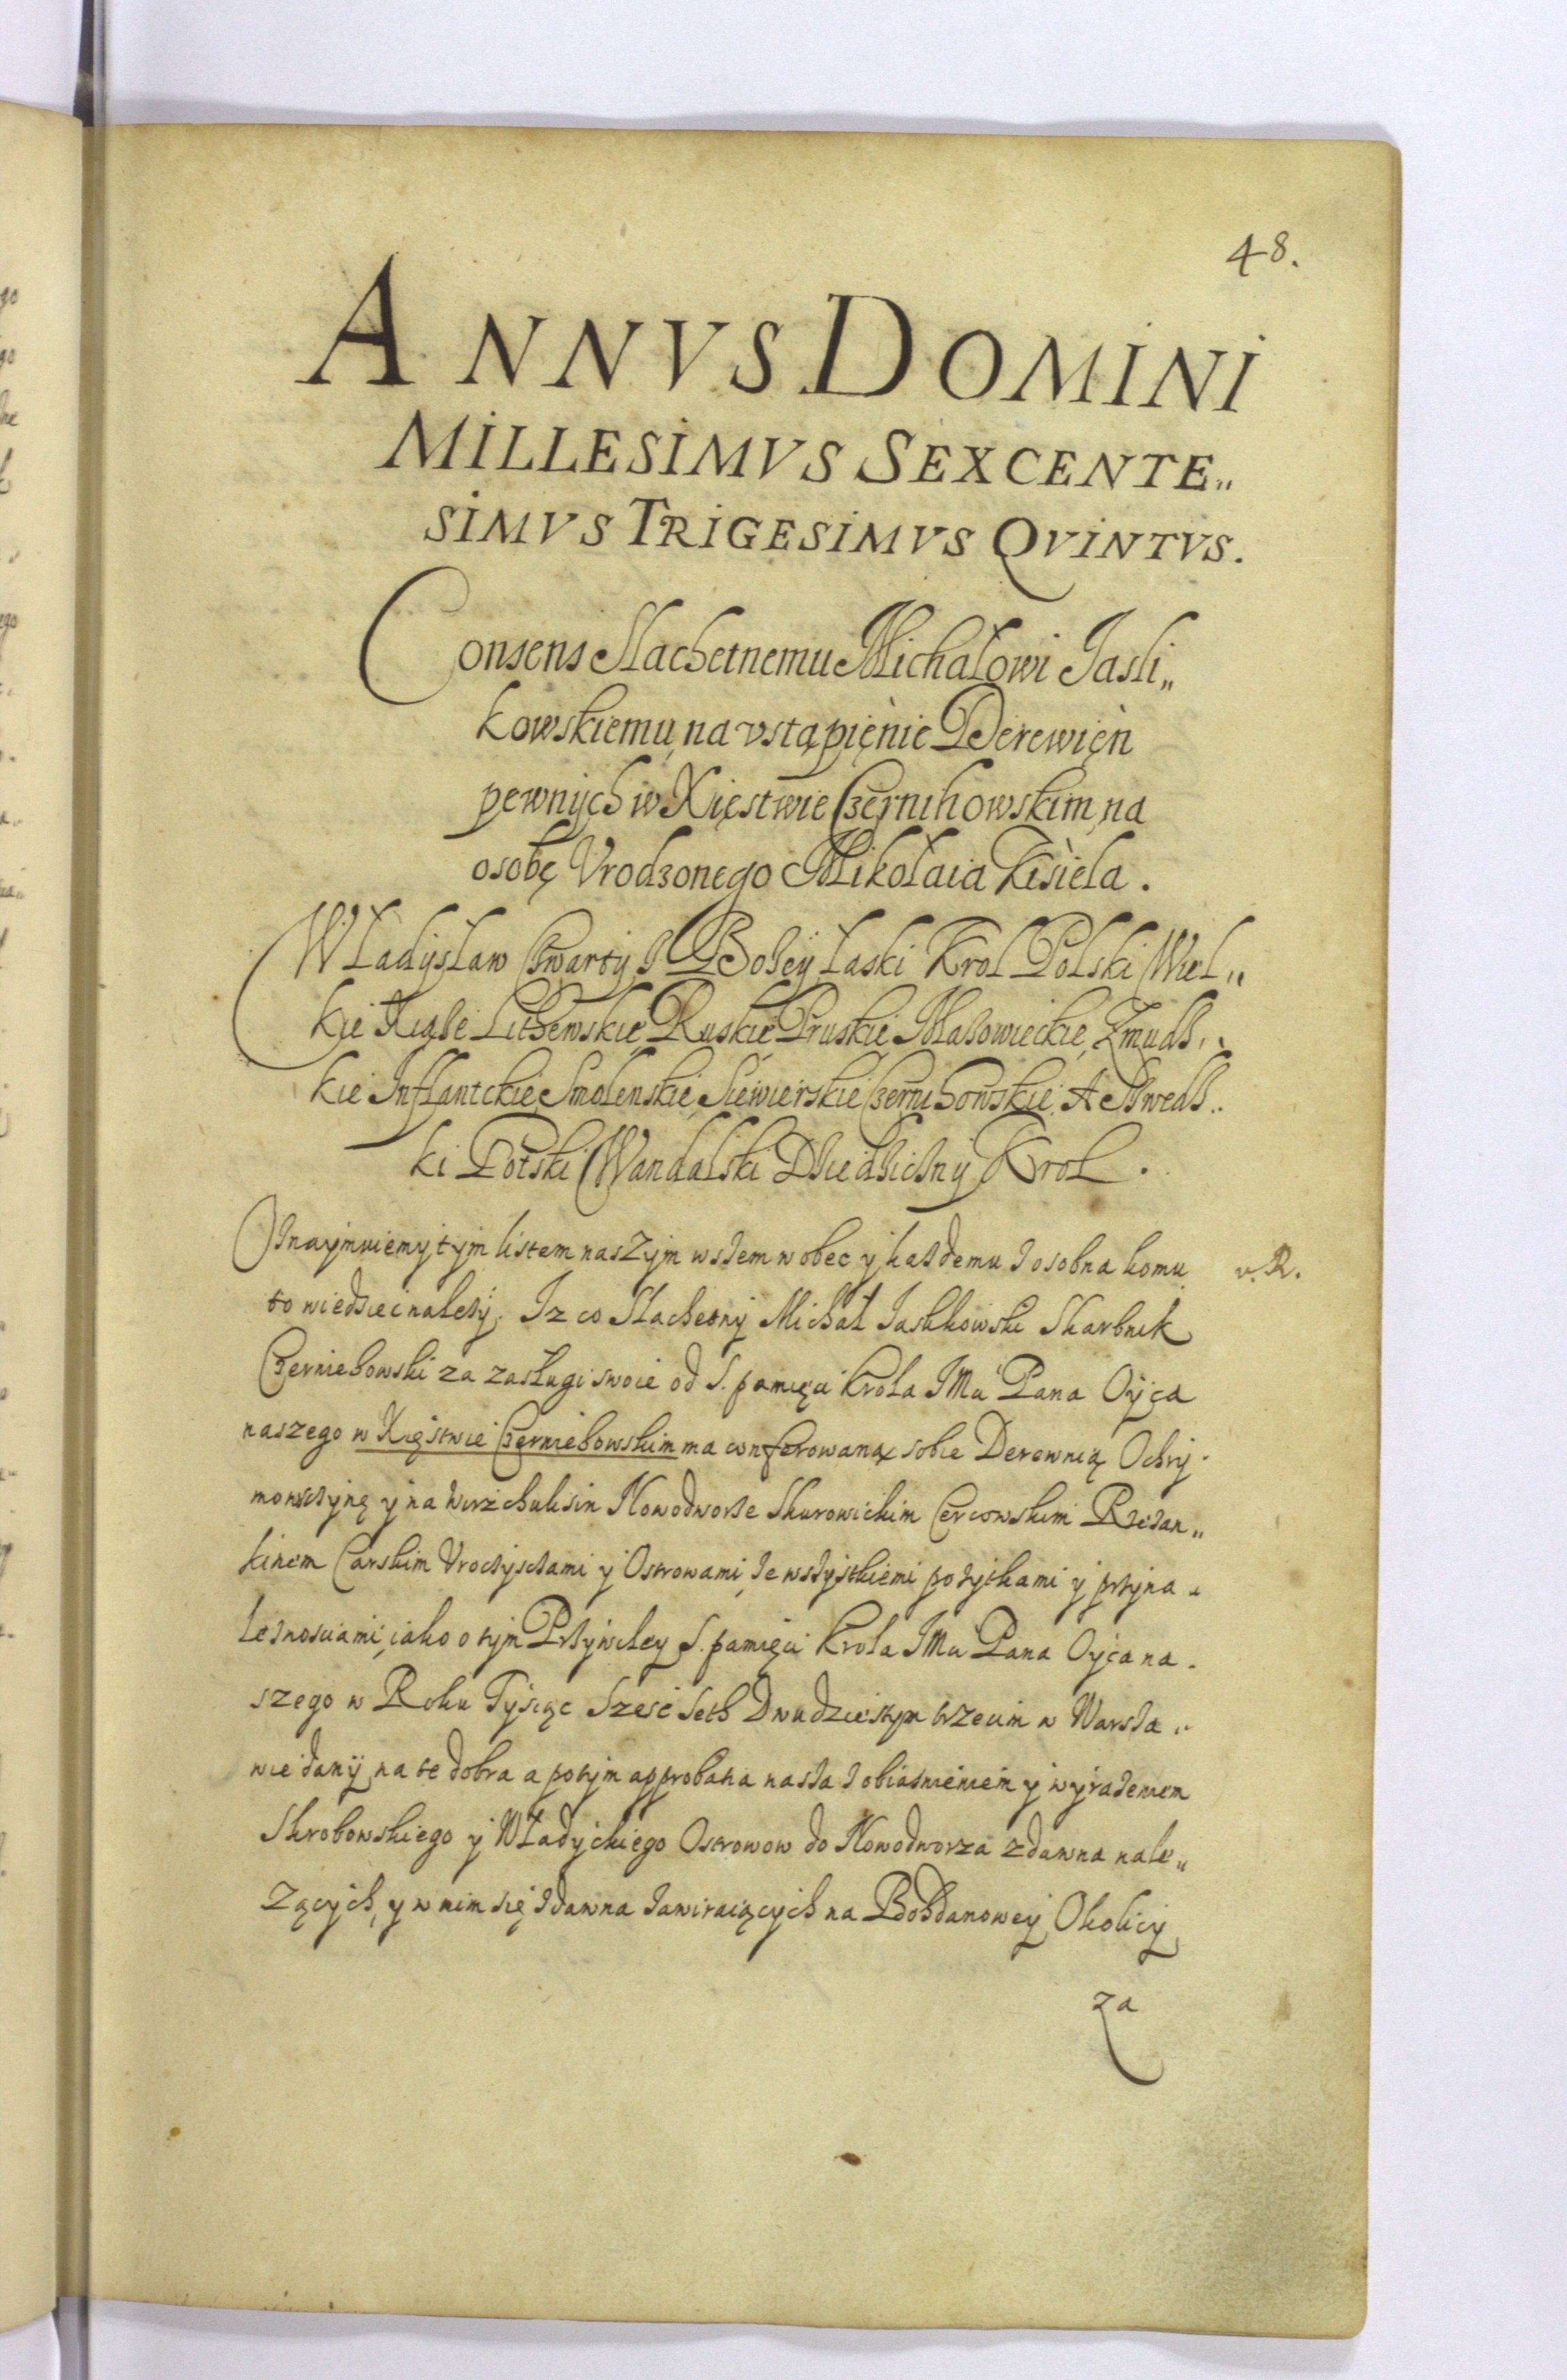 48.
ANNVS DOMINI
MILLESIMVS SEXCENTE„
SIMVS TRIGESIMVS QVINTVS.
Consens Slachetnemu Michałowi Jasli„
kowskiemu na vstąpięnie Derewięn
pewnych w Xięstwie Czernihowskim na
osobę Vrodzonego Mikołaia Kisiela.
Władysław Czwarty z Bozey łaski Krol Polski Wiel„
kie Xiąze Lithewskie Ruskie Pruskie Mazowieckie Zmudz„
kie Inflantckie Smolenskie Siewierskie Czernihowskie A Szwedz„
ki Gotski Wandalski Dziedziczny Krol.
Oznaymuiemy tym listem naszym wszem wobec y kazdemu zosobna komu v. R.
to wiedziec nalezy. Iz co Slachetny Michał Jaslikowski Skarbnik
Czerniehowski za zasługi swoie od S. pamięci Krola JMci Pana Oyca
naszego w Xięstwie Czerniehowskim ma conferowaną sobie Derewnią Ochry„
monsczyną y na Nowodworze Skurowickim Cercowskim
kinem Carskim Vroczysczami y Ostrowami, ze wszystkiemi pozytkami y przyna„
leznosciami, iako o tym Przywiley S. pamięci Krola JMci Pana Oyca na„
szego w Roku Tysiąc Szesc Seth Dwudziestym trzecim w Warsza„
wie dany na te dobra a potym approbatia nasza z obiasnieniem y wyrazeniem
Skrobowskiego y Władyckiego Ostrowow do Nowodworza zdawna nale„
zących, y w nim się zdawna zawiraiących na Bohdanowey Okolicy
za